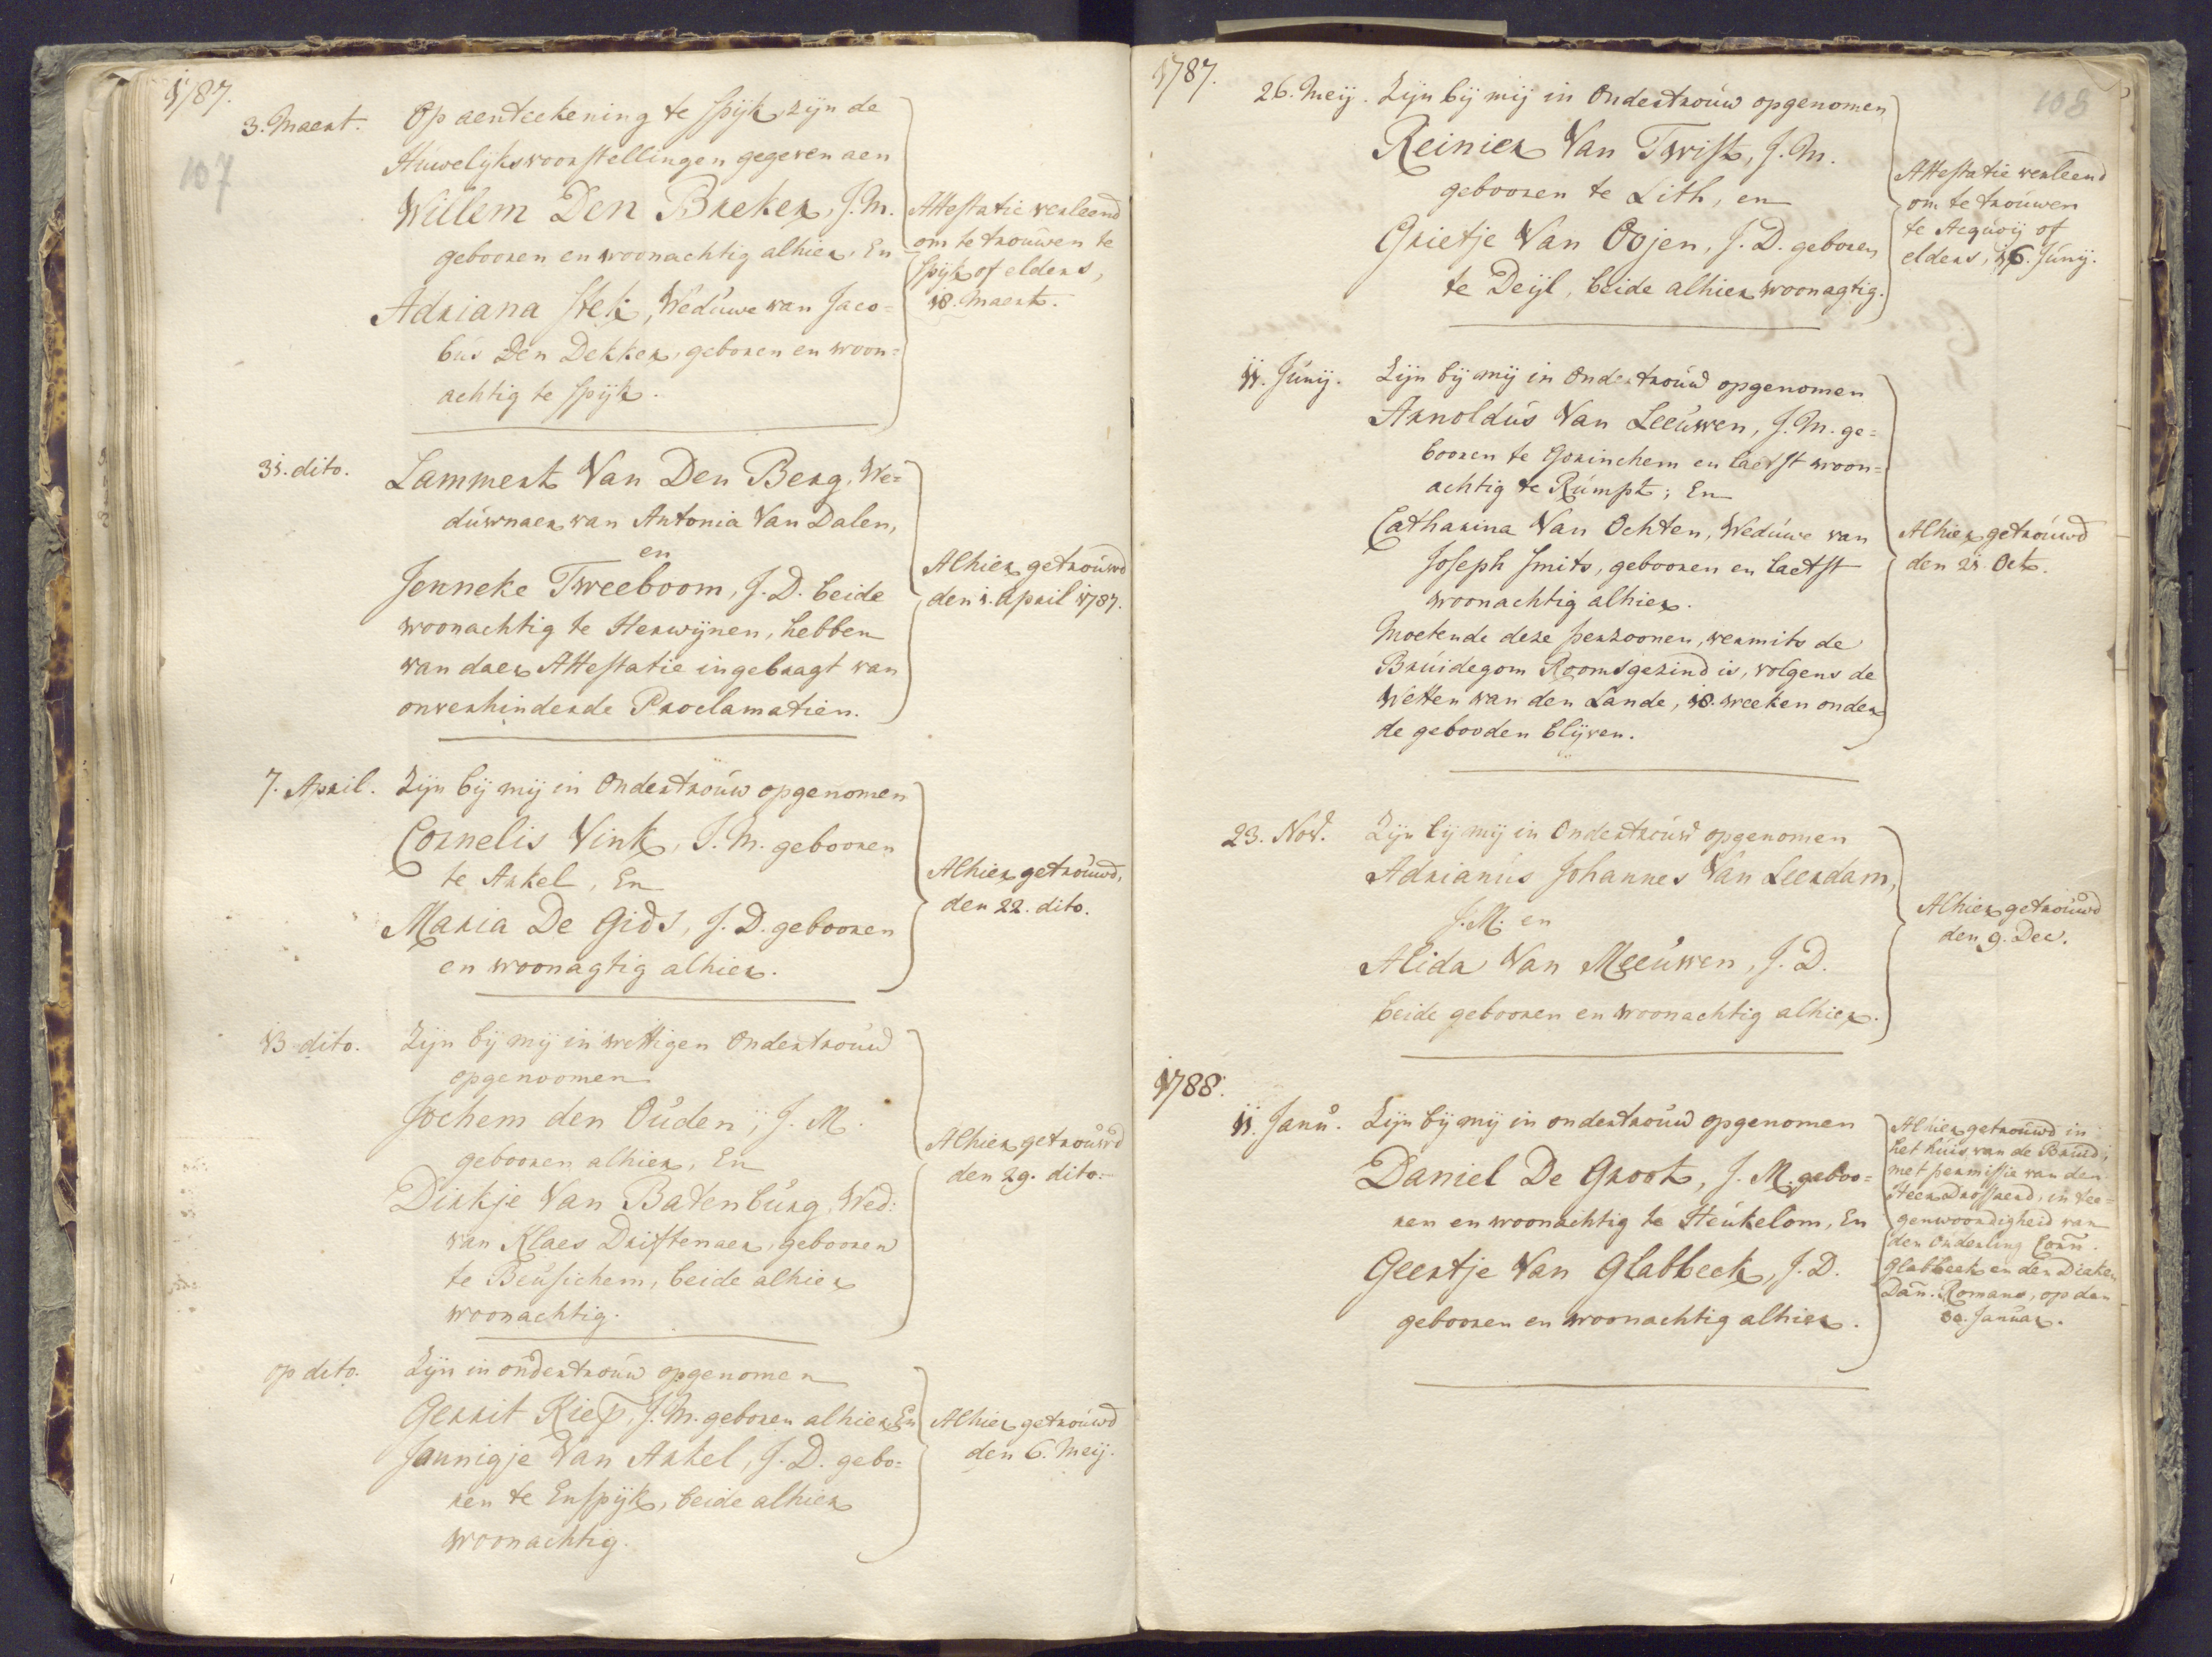 1787.
107
3. Maert. Op aenteekening te Spijk, zijn de
Húwelijksvoorstellingen gegeven aen
Willem Den Breker, J. M.
geboren en woonachtig alhier, En
Adriana Stek, Wedúwe van Jaco=
bús Den Dekker, geboren en woon=
achtig te Spijk.
Attestatie verleend
om te troúwen te
Spijk of elders,
18. Maert.
31. dito. Lammert Van Den Berg, We=
dúwnaer van Antonia Van Dalen,
en
Jenneke Tweeboom, J. D. beide
woonachtig te Herwijnen, hebben
van daer Attestatie ingebragt van
onverhinderde Proclamatien.
Alhier getroúwd
den 1. April 1787.
7. April. Zijn bij mij in Ondertroúw opgenomen
Cornelis Vink, J. M. gebooren
te Arkel, En
Maria De Gids, J. D. gebooren
en woonagtig alhier.
Alhier getroúwd,
den 22. dito.
13 dito. Zijn bij mij in wettigen Ondertroúw
opgenoomen
Jochem den Oúden, J. M.
gebooren alhier, En
Dirkje Van Batenbúrg, Wed:
van Klaes Driftenaer, gebooren
te Beúsichem, beide alhier
woonachtig.
Alhier getroúwd
den 29. dito.
op dito. Zijn in ondertroúw opgenomen
Gerrit Kiep, J. M. geboren alhier, En
Jannigje Van Arkel, J. D. gebo=
ren te Enspijk, beide alhier
woonachtig.
Alhier getroúwd
den 6. Meij.
1787.
108
26. Meij. Zijn bij mij in Ondertroúw opgenomen
Reinier Van Twist, J. M.
gebooren te Lith, en
Grietje Van Oojen, J. D. geboren
te Deijl, beide alhier woonagtig.
Attestatie verleend
om te troúwen
te Acqúoij of
elders, 16. Júnij.
11. Júnij. Zijn bij mij in Ondertroúw opgenomen
Arnoldús Van Leeúwen, J. M. ge=
booren te Gorinchem en laetst woon=
achtig te Rúmpt; En
Catharina Van Ochten, Wedúwe van
Joseph Smits, gebooren en laetst
woonachtig alhier.
Moetende deze perzoonen, vermits de
Brúidegom Roomsgezind is, volgens de
Wetten van den Lande, 18. weeken onder
de gebooden blijven.
Alhier getroúwd
den 21. Oct.
23. Nov. Zijn bij mij in Ondertroúw opgenomen
Adrianús Johannes Van Leerdam,
J. M. en
Alida Van Meeúwen, J. D.
beide gebooren en woonachtig alhier.
Alhier getroúwd
den 9. Dec.
1788.
11. Janú. Zijn bij mij in ondertroúw opgenomen
Daniel De Groot, J. M. geboo=
ren en woonachtig te Heúkelom, En
Geertje Van Glabbeek, J. D.
gebooren en woonachtig alhier.
Alhier getroúwd in
het húis van de Brúid,
met permissie van den
Heer Drossaerd, in tee=
genwoordigheid van
den Ouderling Corn.
Glabbeek en den Diaken
Dan. Romans, op den
30. Januar.